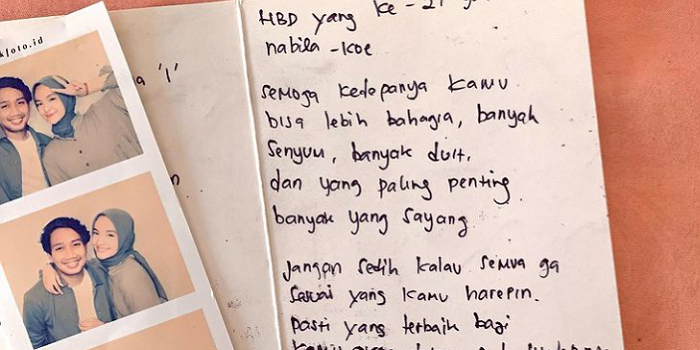 kfoto.id
a 'I'
HBD yang ke - 21
nabila - koe
semoga kedepanya kamu
bisa lebih bahagia, banyak
senyum, banyak duit,
dan yang paling penting
banyak yang sayang
jangan sedih kalau semua ga
sesuai yang kamu harepin.
pasti yang terbaik bagi